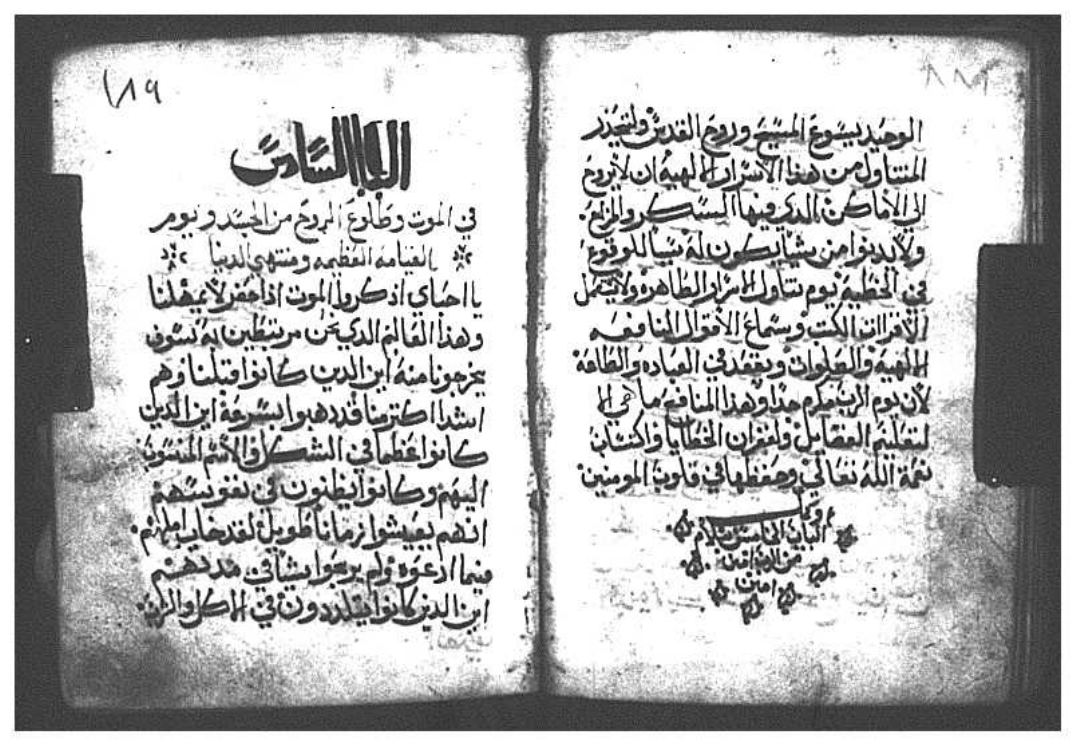 الوحيد يسوع المسيح وروح القدس وليحذر
المتناول من هذا الاسرار الالهية ان لا يروح
الي الاماكن الذي فيها السكر والزمر
ولا يدنوا من شيا يكون له سببا للوقوع
في الخطية يوم تناول الاسرار الطاهره ولا يهمل
الاقرات الكتب وسماع الاقوال النافعه
الالهية والصلوات ويفقد في العباده والطاعة
لان يوم الرب مكرم جدا وهذا المنافع ما هي الا
لتعليم الفضايل ولغفران الخطايا واكتساب
نعمة الله تعالي وحفظها في قلوب المومنين
وكمل
الباب الخامس بسلام
من الرب امين
امين
١٨٩
الباب السادس
في الموت وطلوع الروح من الجسد ويوم
القيامه العظيمه ومنتهي الدنيا
يا احباي اذكروا الموت اذا حضر لا يمهلنا
وهذا العالم الذي نحن مرتبطين به سوف
يخرجونا منه اين الذين كانوا قبلنا وهم
اشدا اكتر منا قد ذهبوا بسرعة اين الذين
كانوا عظما في الشكل والاسم المنسوب
اليهم وكانوا يظنون في نفوسهم
انهم يعيشوا زمانا طويل لقد خاب املهم
فيما ادعوه ولم يربحوا بشا في
اين الذين كانوا يتلددون في الاكل والزينه